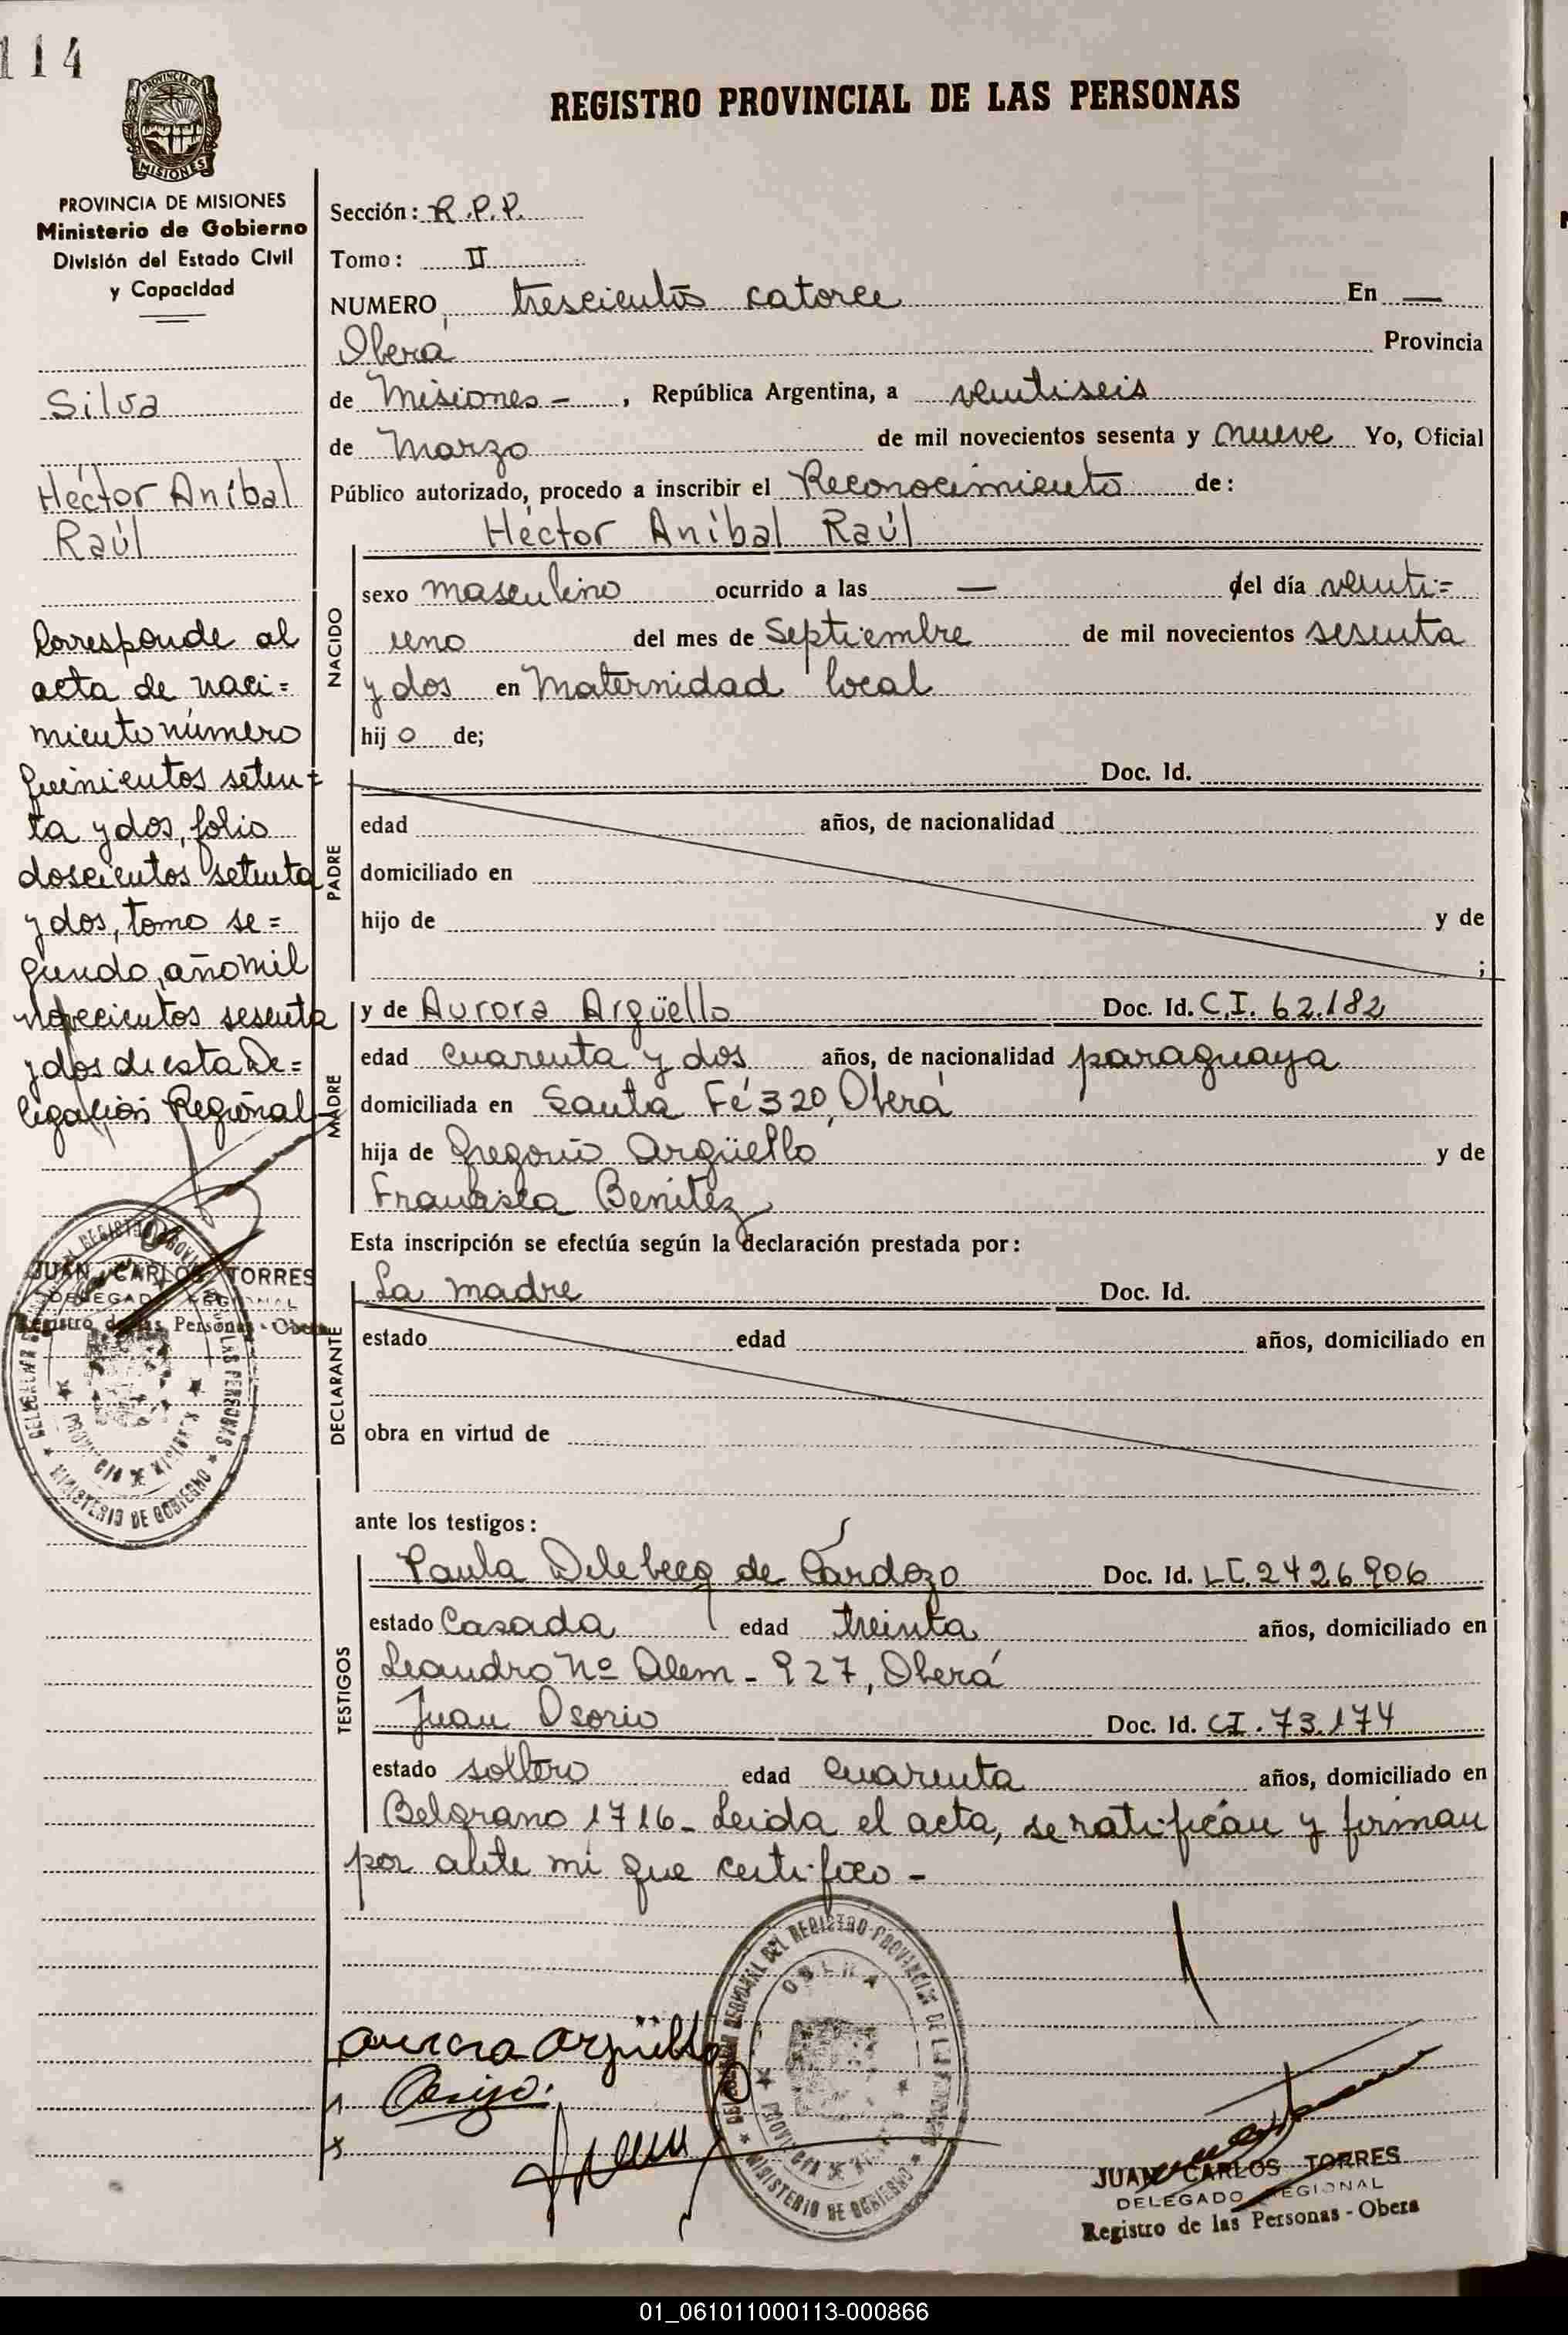 114
PROVINCIA DE
MISIONES
REGISTRO PROVINCIAL DE LAS PERSONAS
PROVINCIA DE MISIONES
Ministerio de Gobierno
División del Estado Civil
y Capacidad
Silva
Héctor Aníbal
Raúl
Corresponde al
acta de naci=
miento número
quinientos seten=
ta y dos, folio
doscientos setenta
y dos, tomo se=
gundo, año mil
novecientos sesenta
y dos de esta De=
legación Regional
JUAN CARLOS TORRES
DELEGADO REGIONAL
Registro de las Personas - Obera
Sección: R.P.P.
Tomo: II
NUMERO trescientos catorce En —
Oberá Provincia
de Misiones - , República Argentina, a veintiseis
de Marzo de mil novecientos sesenta y nueve Yo, Oficial
Público autorizado, procedo a inscribir el Reconocimiento de:
Héctor Aníbal Raúl
NACIDO
sexo masculino ocurrido a las — del día veinti=
uno del mes de Septiembre de mil novecientos sesenta
y dos en Maternidad local
hij o de;
PADRE
Doc. Id.
edad años, de nacionalidad
domiciliado en
hijo de y de
;
MADRE
y de Aurora Argüello Doc. Id. C.I. 62.182
edad cuarenta y dos años, de nacionalidad paraguaya
domiciliada en Santa Fé 320, Oberá
hija de Gregorio Argüello y de
Francisca Benítez
Esta inscripción se efectúa según la declaración prestada por:
DECLARANTE
La madre Doc. Id.
estado edad años, domiciliado en
obra en virtud de
ante los testigos:
TESTIGOS
Paula Delebecq de Cardozo Doc. Id. LC. 2426906
estado Casada edad treinta años, domiciliado en
Leandro Nº Alem - 927, Oberá
Juan Osorio Doc. Id. CI. 73.174
estado soltero edad cuarenta años, domiciliado en
Belgrano 1716- Leida el acta, se ratifican y firman
por ante mi que certifico -
Aurora Argüello
DELEGACION REGIONAL DEL REGISTRO PROVINCIAL DE LAS PERSONAS
OBERA
PROVINCIA DE MISIONES
MINISTERIO DE GOBIERNO
JUAN CARLOS TORRES
DELEGADO REGIONAL
Registro de las Personas - Obera
01_061011000113-000866